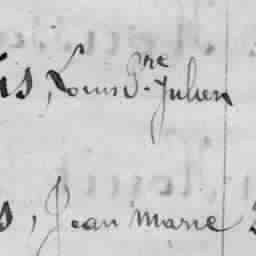 is, Louis Pre. Julien
s, Jean Marie